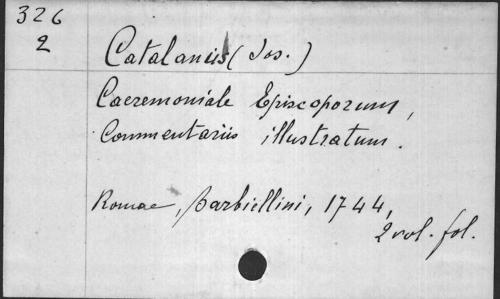 326
2
Catalanus (Jos.)
Caeremoniale Episcoporum,
Commentariis illustratum.
Romae, Barbiellini, 1744,
2 vol. fol.